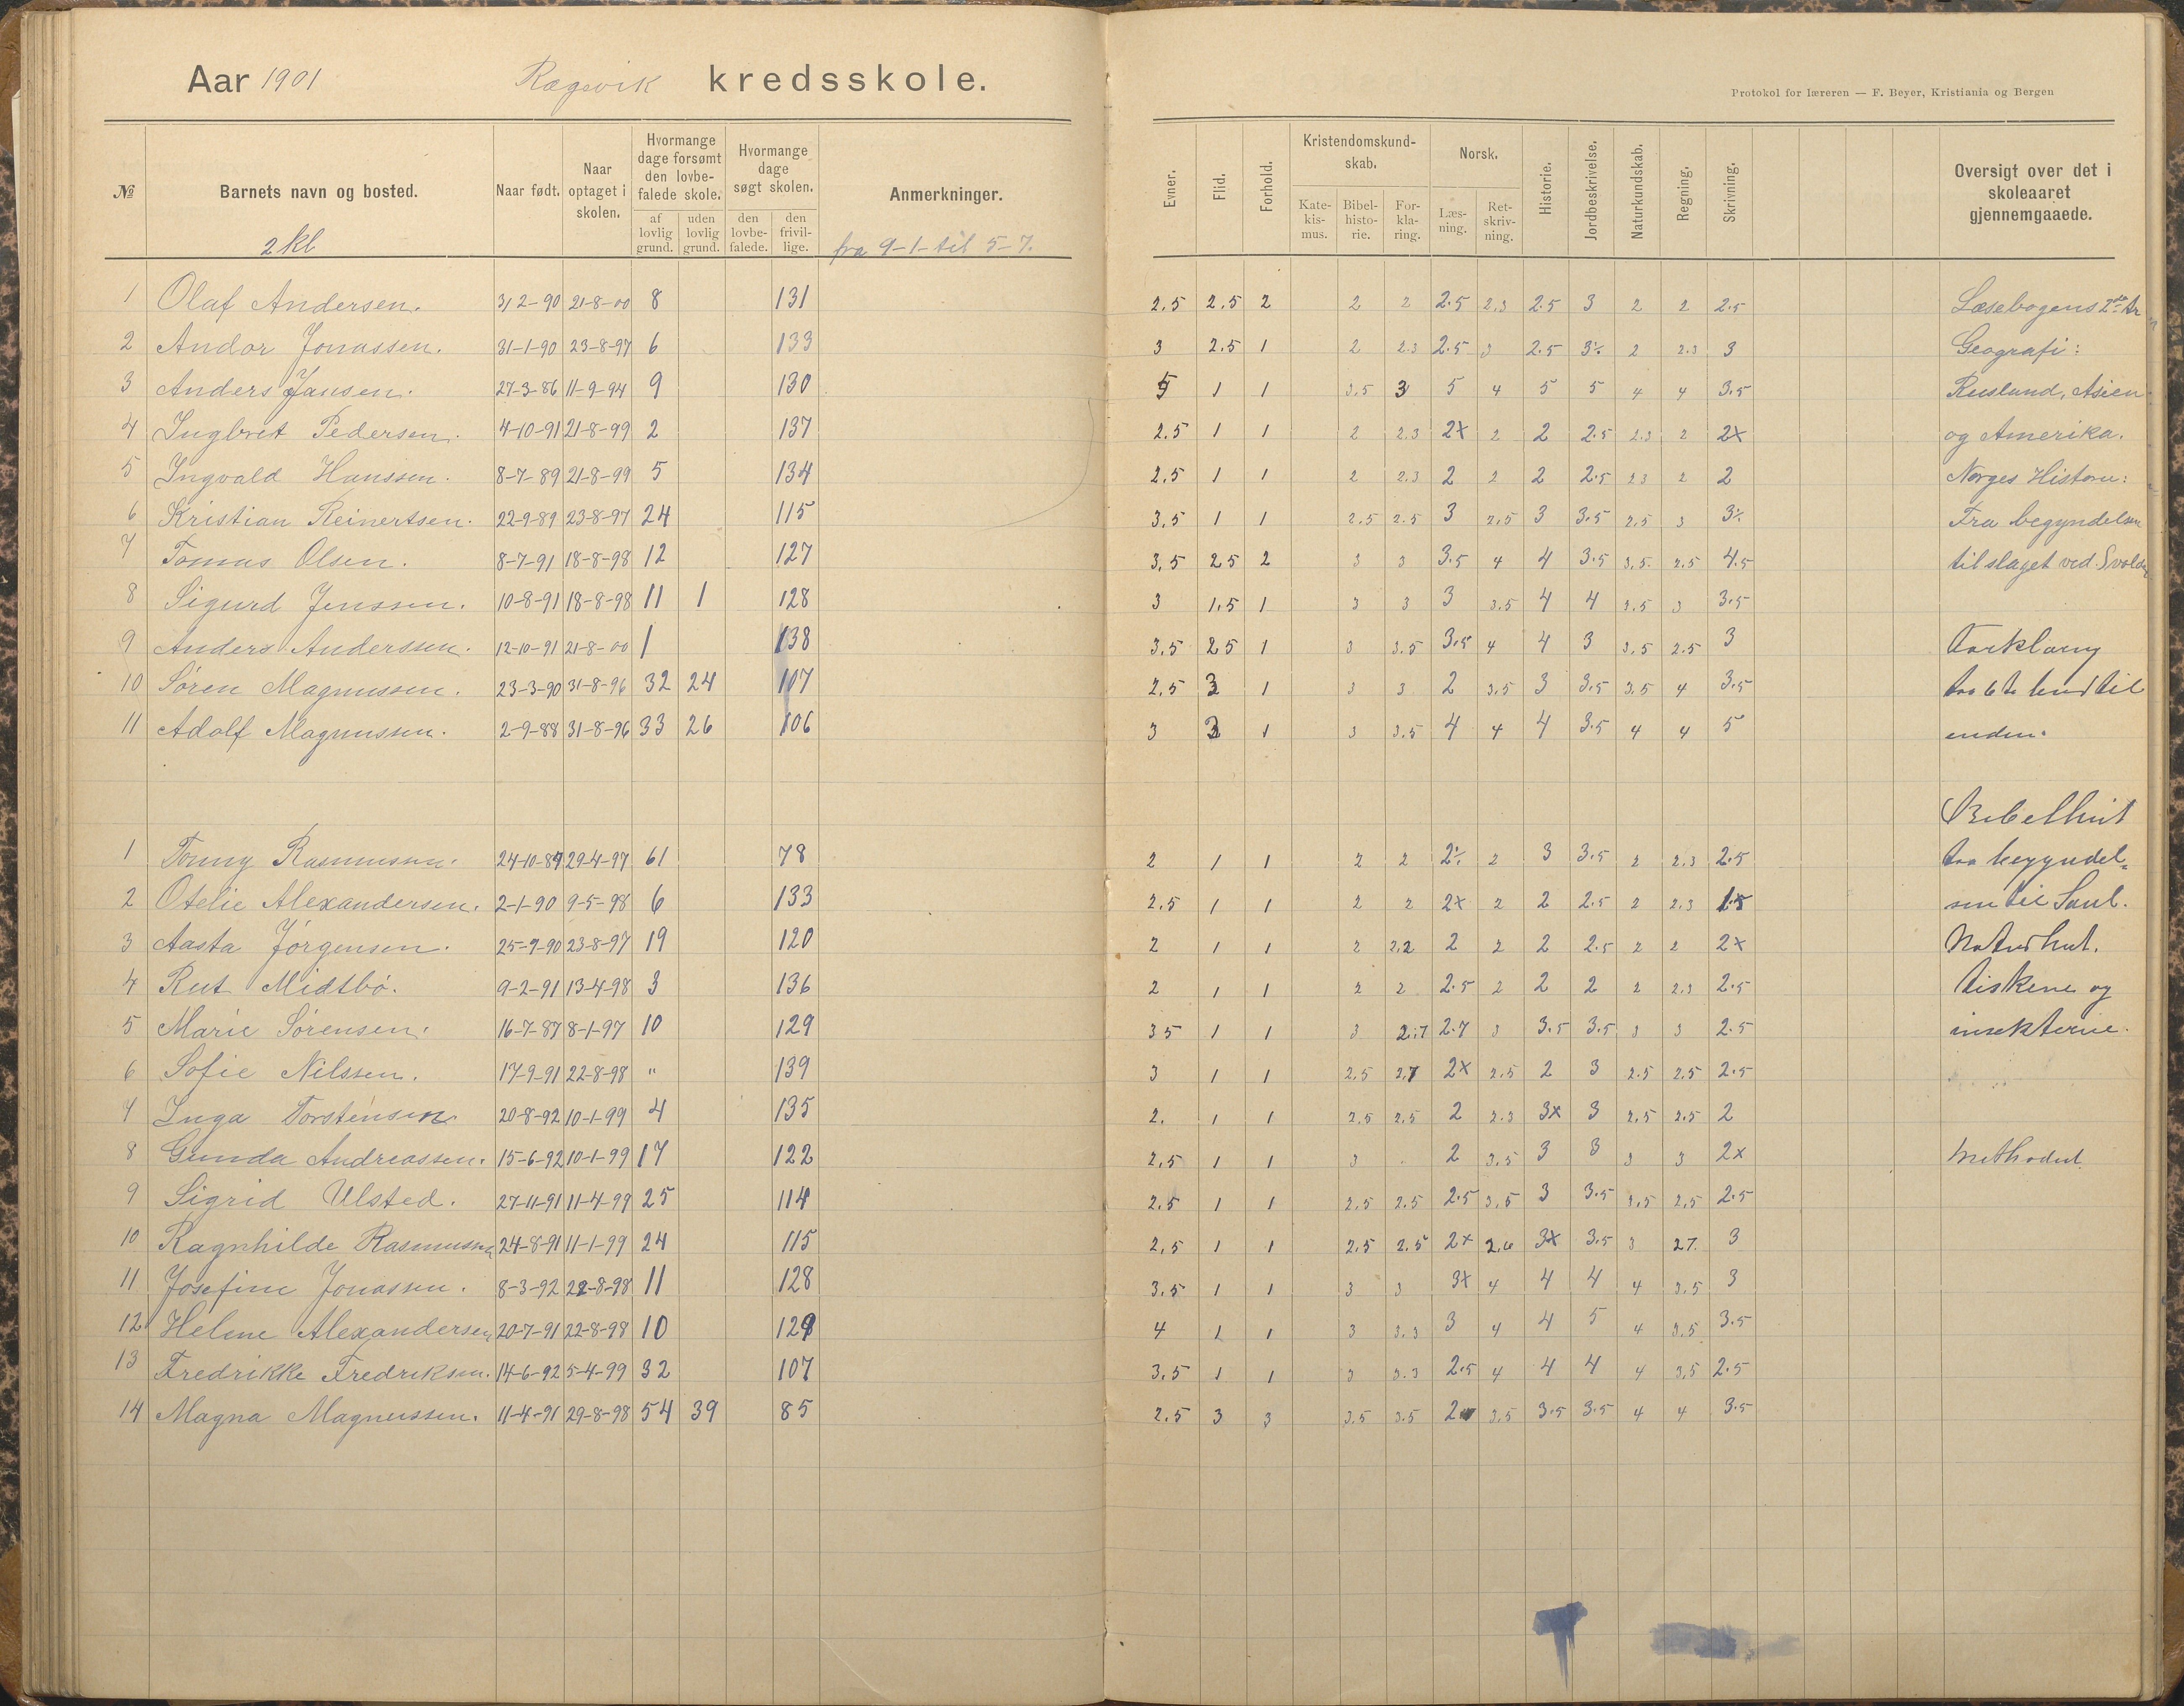 Aar 1901 Rægevik kredsskole.
Protokol for læreren — F. Beyer, Kristiania og Bergen
№ Barnets navn og bosted. Naar født. Naar optaget i skolen. Hvormange dage forsømt den lovbefalede skole. af lovlig grund. uden lovlig grund. Hvormange dage søgt skolen. den lovbefalede. den frivillige. Anmerkninger. Evner. Flid. Forhold. Kristendomskundskab. Katekismus. Bibelhistorie. Forklaring. Norsk. Læsning. Retskrivning. Historie. Jordbeskrivelse. Naturkundskab. Regning. Skrivning. Oversigt over det i skoleaaret gjennemgaaede.
2 kl fra 9-1- til 5-7.
1 Olaf Andersen. 31 2-90 21-8-00 8 131 2.5 2.5 2 2 2 2.5 2.3 2.5 3 2 2 2.5 Læsebogens 2
2 Andor Jonassen. 31-1-90 23-8-97 6 133 3 2.5 1 2 2.3 2.5 3 2.5 3÷ 2 2.3 3 Geografi:
3 Anders Jansen. 27-3-86 11-9-94 9 130 5 1 1 3.5 3 5 4 5 5 4 4 3.5 Rusland, Asien
4 Ingbret Pedersen. 4-10-91 21-8-99 2 137 2.5 1 1 2 2.3 2x 2 2 2.5 2.3 2 2x og Amerika.
5 Ingvald Hanssen. 8-7-89 21-8-99 5 134 2.5 1 1 2 2.3 2 2 2 2.5 2 3 2 2 Norges Historie:
6 Kristian Reinertsen. 22-9-89 23-8-97 24 115 3.5 1 1 2.5 2.5 3 2.5 3 3.5 2.5 3 3÷ Fra begyndelsen
7 Tomas Olsen. 8-7-91 18-8-98 12 127 3.5 2 5 2 3 3 3.5 4 4 3.5 3.5 2.5 4.5 til slaget ved Svolder
8 Sigurd Jenssen. 10-8-91 18-8-98 11 1 128 3 1.5 1 3 3 3 3.5 4 4 3.5 3 3.5
9 Anders Anderssen. 12-10-91 21-8-00 1 138 3.5 2 5 1 3 3.5 3.5 4 4 3 3.5 2.5 3 Forklaring
10 Søren Magnussen. 23-3-90 31-8-96 32 24 107 2.5 3 1 3 3 2 3.5 3 3.5 3.5 4 3.5 fra 6te bud til
11 Adolf Magnussen. 2-9-88 31-8-96 33 26 106 3 3 1 3 3.5 4 4 4 3.5 4 4 5 enden.
Bibelhist
1 Tonny Rasmussen. 24-10-89 29-4-97 61 78 2 1 1 2 2 2÷ 2 3 3.5 2 2.3 2.5 fra begyndel-
2 Otelie Alexandersen. 2-1-90 9-5-98 6 133 2.5 1 1 2 2 2x 2 2 2.5 2 2.3 1.5 sen til Saul.
3 Aasta Jørgensen. 25-7-90 23-8-97 19 120 2 1 1 2 2.2 2 2 2 2.5 2 2 2x Naturhist.
4 Rut Midtbø. 9-2-91 13-4-98 3 136 2 1 1 2 2 2.5 2 2 2 2 2.3 2.5 Fiskene og
5 Marie Sørensen. 16-7-87 8-1-97 10 129 3 5 1 1 3 2.7 2.7 3 3.5 3.5 3 3 2.5 insekterne.
6 Sofie Nilssen. 17-9-91 22-8-98 " 139 3 1 1 2.5 2.7 2x 2.5 2 3 2.5 2.5 2.5
7 Inga Torstensen 20-8-92 10-1-99 4 135 2. 1 1 2.5 2.5 2 2.3 3x 3 2.5 2.5 2
8 Gunda Andreassen. 15-6-92 10-1-99 17 122 2.5 1 1 3 2 3.5 3 3 3 3 2x
9 Sigrid Ulsted. 27-11-91 11-4-99 25 114 2.5 1 1 2.5 2.5 2.5 3.5 3 3.5 3.5 2.5 2.5
10 Ragnhilde Rasmussen 24-8-91 11-1-99 24 115 2.5 1 1 2.5 2.5 2x 2.6 3x 3.5 3 27. 3
11 Josefine Jonassen. 8-3-92 22-8-98 11 128 3.5 1 1 3 3 3x 4 4 4 4 3.5 3
12 Helene Alexandersen 20-7-91 22-8-98 10 129 4 1 1 3 3.3 3 4 4 5 4 3.5 3.5
13 Fredrikke Fredriksen. 14-6-92 5-4-99 32 107 3.5 1 1 3 3.3 2.5 4 4 4 4 3.5 2.5
14 Magna Magnussen. 11-4-91 29-8-98 54 39 85 2.5 3 3 3.5 3.5 2 3.5 3.5 3.5 4 4 3.5